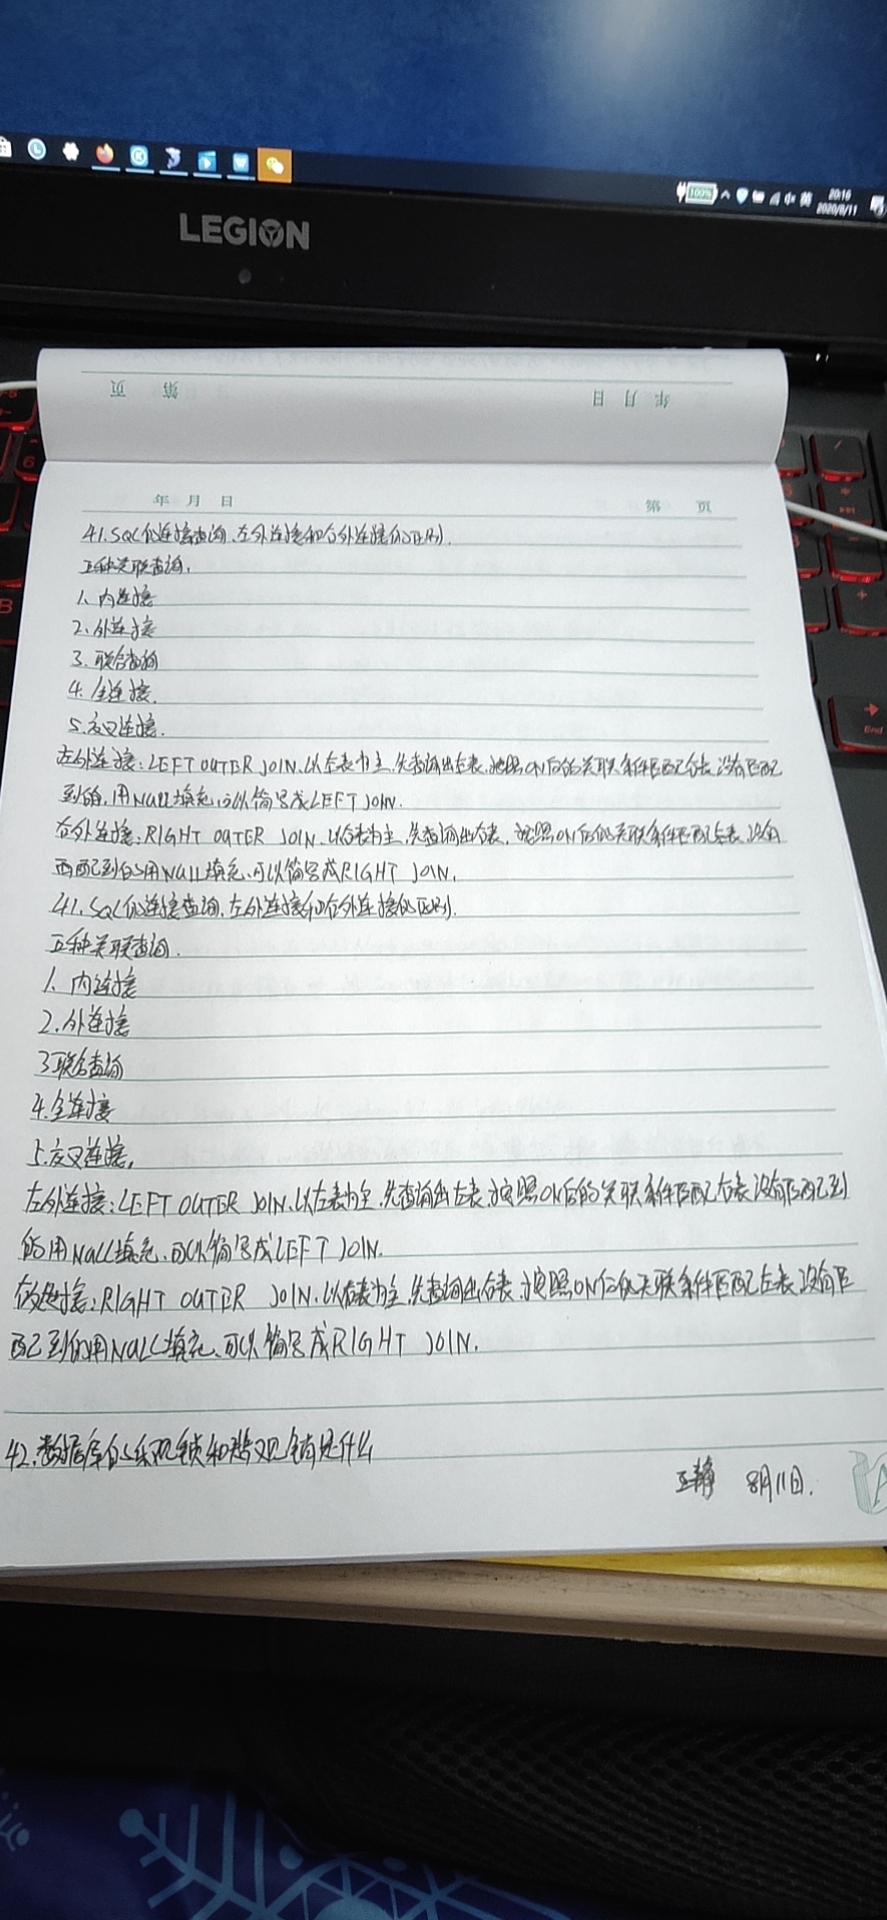 100%
英
20:16
2020/8/11
LEGION
年 月 日
第 页
年 月 日 第 页
41.SQL的连接查询、左外连接和右外连接的区别.
五种关联查询.
1、内连接
2.外连接
3.联合查询
4.全连接.
5.交叉连接.
左外连接:LEFT OUTER JOIN.以左表为主,先查询出左表,按照ON后的关联条件匹配右表,没有匹配
到的,用NULL填充,可以简写成LEFT JOIN.
右外连接:RIGHT OUTER JOIN.以右表为主,先查询出右表,按照ON后的关联条件匹配左表,没有
匹配到的用NULL填充,可以简写成RIGHT JOIN.
41.SQL的连接查询、左外连接和右外连接的区别.
五种关联查询.
1、内连接
2.外连接
3联合查询
4.全连接
5.交叉连接.
左外连接:LEFT OUTER JOIN.以左表为主,先查询出左表,按照ON后的关联条件匹配右表没有匹配到
的用NULL填充,可以简写成LEFT JOIN.
右外连接:RIGHT OUTER JOIN.以右表为主,先查询出右表,按照ON后的关联条件匹配左表,没有匹
配到的用NULL填充,可以简写成RIGHT JOIN.
42.数据库的乐观锁和悲观锁是什么
王静 8月11日.
End